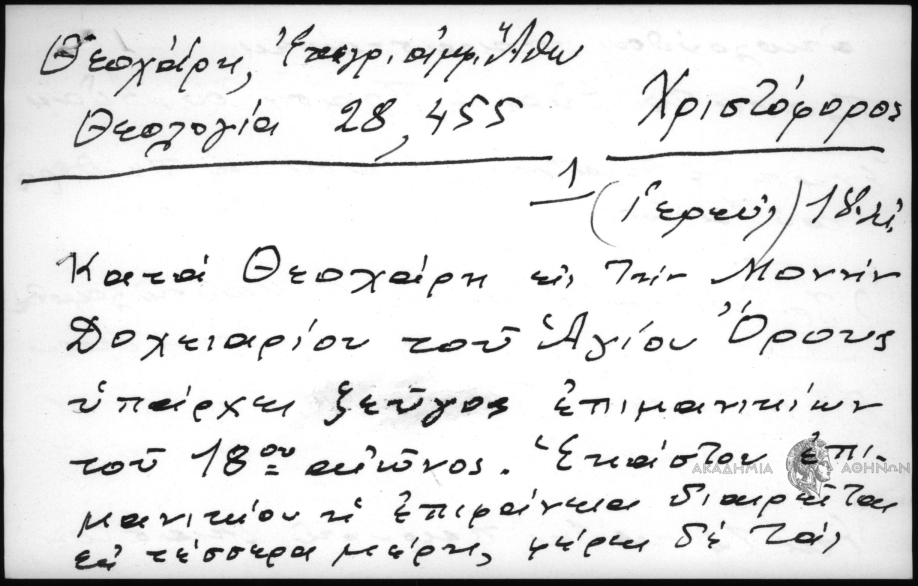 Θεοχάρη, Ἐπιγρ. ἀμφ. Ἄθω
Θεολογία 28, 455
Χριστόφορος
1
(Ἱερεύς) 18. αἰ.
Κατά Θεοχάρη εἰς τήν Μονήν
Δοχειαρίου τοῦ Ἁγίου Ὄρους
ὑπάρχει ζεῦγος ἐπιμανικίων
τοῦ 18ου αἰῶνος. Ἑκάστου ἐπι-
μανικίου ἡ ἐπιφάνεια διαιρεῖται
εἰς τέσσερα μέρη, φέρει δέ τάς
ΑΚΑΔΗΜΙΑ ΑΘΗΝΩΝ